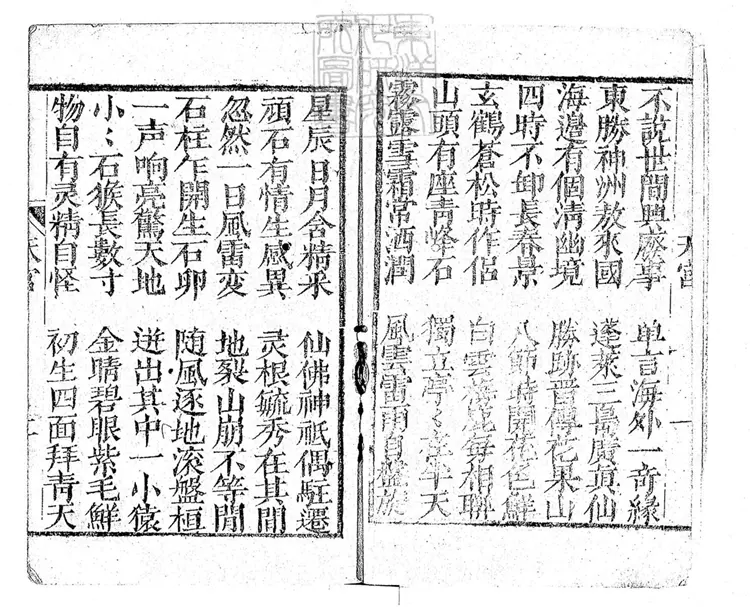 不說世間興廢事　单言海外一奇緣
東勝神洲敖來國　蓬萊三島廣真仙
海邊有個清幽境　勝跡晋傳花果山
四時不卸長春景　八節時開花色鮮
玄鶴蒼松時作侶　白雲海鹿每相聯
山頭有座青峰石　獨立亭〻在半天
霧露雪霜常洒潤　風雲雷雨自盤旋
星辰日月含精采　仙佛神祇偶駐遷
頑石有情生感異　灵根毓秀在其間
忽然一日風雷変　地裂山崩不等閒
石柱乍開生石卵　随風逐地滚盤桓
一声响亮驚天地　迸出其中一小猿
小〻石猴長數寸　金睛碧眼紫毛鮮
物自有灵精自怪　初生四面拜青天